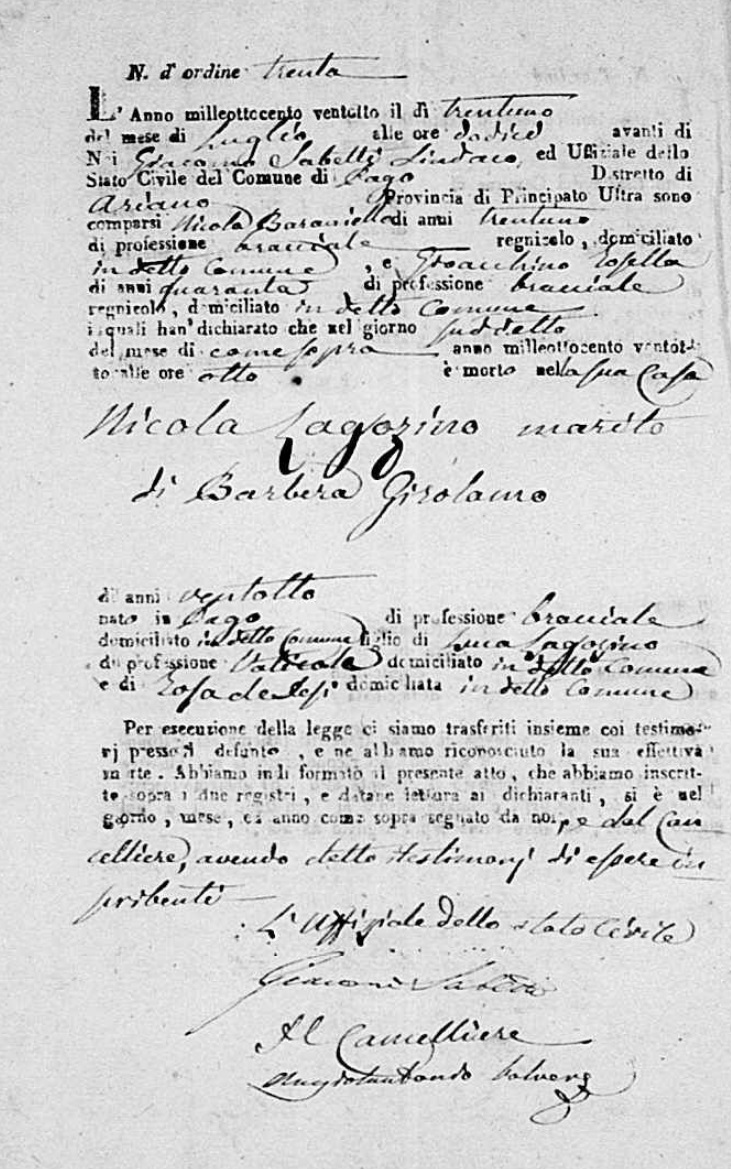 N. d'ordine trenta
L'Anno milleottocento ventotto il dì trentuno
del mese di Luglio alle ore dodici avanti di
Noi Giacomo Sabelli Sindaco, ed Uffiziale dello
Stato Civile del Comune di Pago Distretto di
Ariano Provincia di Principato Ultra sono
comparsi Nicola di anni trentuno
di professione bracciale regnicolo, domiciliato
in detto Comune, e Gioacchino Rosella
di anni quaranta di professione bracciale
regnicolo, domiciliato in detto Comune
i quali han dichiarato che nel giorno suddetto
del mese di come sopra anno milleottocento ventot-
to alle ore otto è morto nella sua Casa
Nicola Lagozino marito
di Barbera Girolamo
di anni ventotto
nato in Pago di professione bracciale
domiciliato in detto Comune figlio di Luca Lagozino
di professione Vaticale domiciliato in detto Comune
e di Rosa de domiciliata in detto Comune
Per esecuzione della legge ci siamo trasferiti insieme coi testimo-
nj presso il defunto, e ne abbiamo riconosciuto la sua effettiva
morte. Abbiamo indi formato il presente atto, che abbiamo inscrit-
to sopra i due registri, e datane lettura ai dichiaranti, si è nel
giorno, mese, ed anno come sopra segnato da noi, e dal Can
celliere, avendo detto testimonj di essere in
scribenti
L'Uffiziale dello stato Civile
Giacomo Sabelli
Il Cancelliere